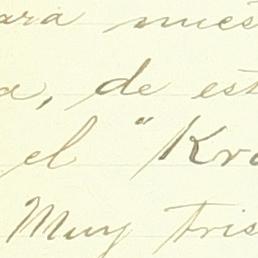 ara nues
a, de est
el "Kra
Muy tris